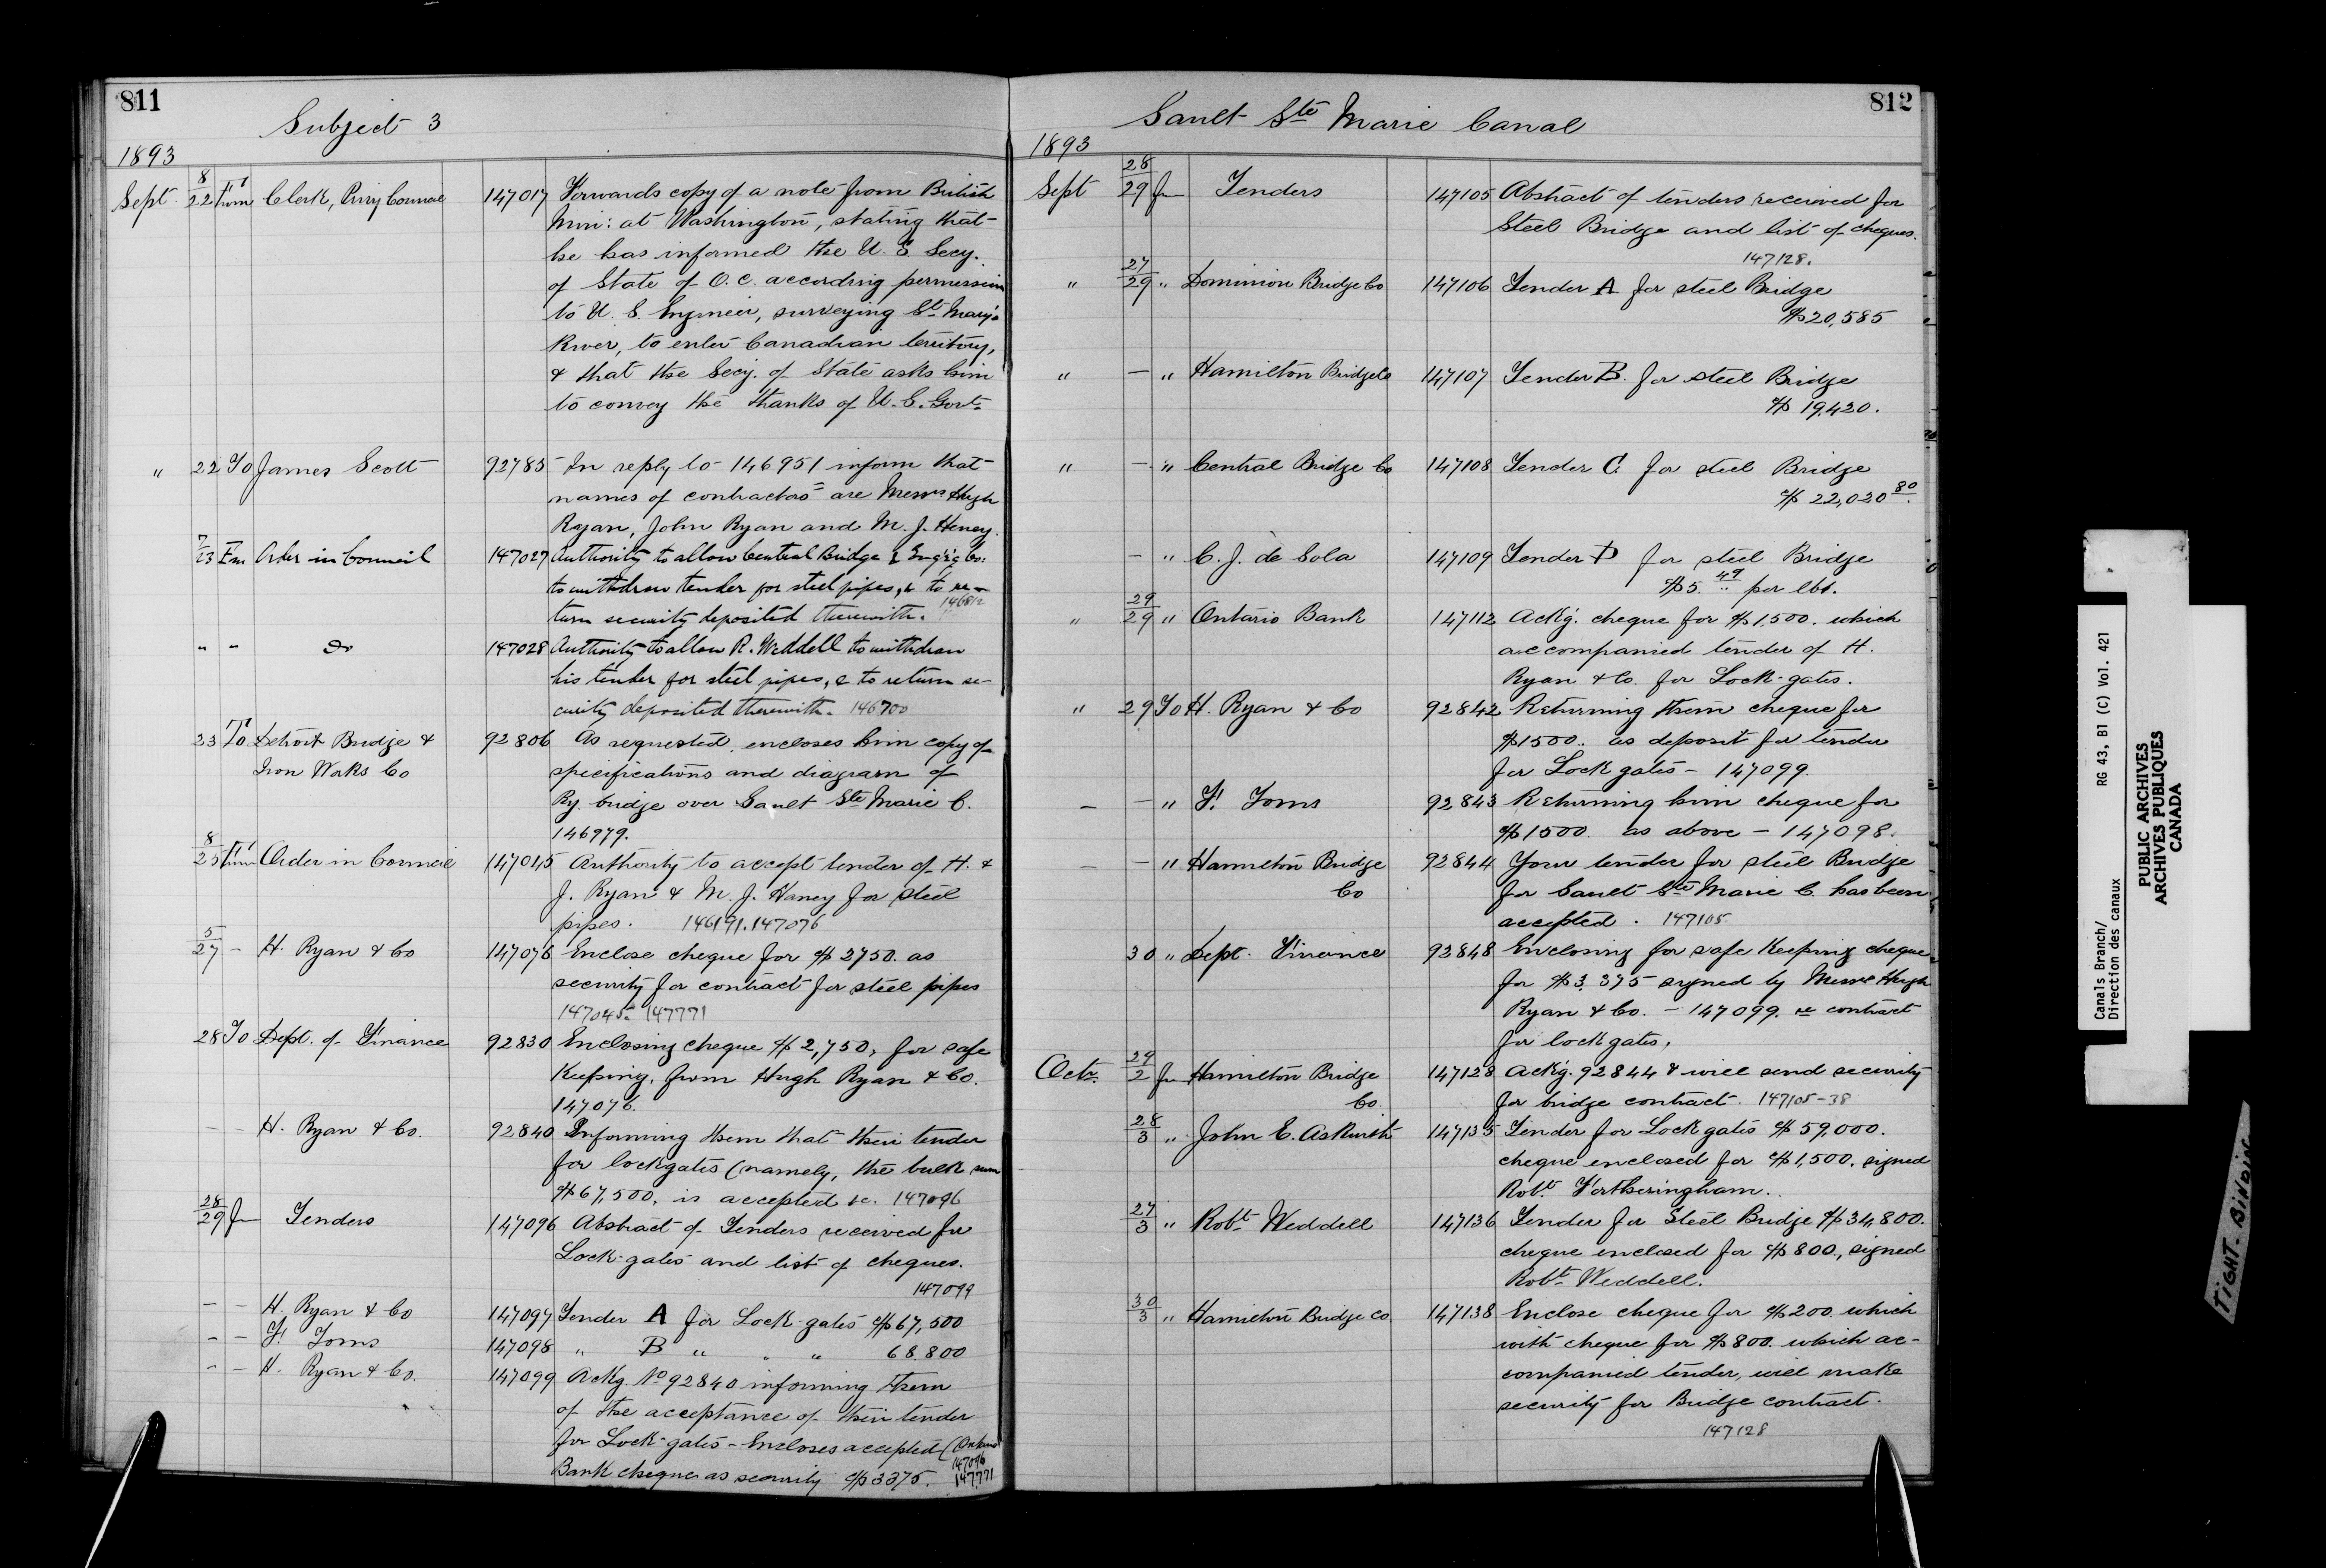 811
Subject 3
1893
Sept. 8/22 From Clerk, Privy Council 147017 Forwards copy of a note from British
Min: at Washington, stating that
he has informed the U.S. Secy.
of State of O.C. according permission
to U.S. Engineer, surveying St Mary's
River, to enter Canadian territory,
& that the Secy. of State asks him
to convey the thanks of U.S. Govt.
" 22 To James Scott 92785 In reply to 146951 inform that
names of contractors are Messrs Hugh
Ryan, John Ryan and M. J. Haney.
7/23 Fm Order in Council 147027 Authority to allow Central Bridge & Eng'r'g Co:
to withdraw tender for steel pipes, & to re-
turn security deposited therewith. 146812
" " Do 147028 Authority to allow R. Weddell to withdraw
his tender for steel pipes, & to return se-
curity deposited therewith. 146700
23 To Detroit Bridge & 92806 As requested, encloses him copy of
Iron Works Co specifications and diagram of
Ry. bridge over Sault Ste Marie C.
146979.
8/25 From Order in Council 147045 Authority to accept tender of H. &
J. Ryan & M. J. Haney for steel
pipes. 146191.147076
5/27 – H. Ryan & Co 147076 Enclose cheque for $2750. as
security for contract for steel pipes
147045. 147771
28 To Dept. of Finance 92830 Enclosing cheque $2,750, for safe
Keeping, from Hugh Ryan & Co.
147076.
– – H. Ryan & Co. 92840 Informing them that their tender
for lockgates (namely, the bulk sum
$67,500, is accepted &c. 147096
28/29 fm Tenders 147096 Abstract of Tenders received for
Lock-gates and list of cheques.
147099
– – H. Ryan & Co 147097 Tender A for Lock-gates $67,500
– – F. Toms 147098 " B " " " 68.800
– – H. Ryan & Co. 147099 Ackg. No 92840 informing them
of the acceptance of their tender
for Lock-gates – Encloses accepted (Ontario
147096
Bank cheque as security $3375. 147771
812
Sault Ste Marie Canal
1893
Sept 28/29 fm Tenders 147105 Abstract of tenders received for
Steel Bridge and list of cheques.
147128.
" 27/29 " Dominion Bridge Co 147106 Tender A for steel Bridge
$20,585
" – " Hamilton Bridge Co 147107 Tender B. for steel Bridge
$19,420.
" – " Central Bridge Co 147108 Tender C. for steel Bridge
$22,020 80.
– " C. J. de Sola 147109 Tender D for steel Bridge
$5.49 per lbs.
" 29/29 " Ontario Bank 147112 Ack'g. cheque for $1,500. which
accompanied tender of H.
Ryan & Co. for Lock-gates.
" 29 To H. Ryan & Co 92842 Returning them cheque for
$1500. as deposit for tender
for Lock gates – 147099.
– – " F. Toms 92843 Returning him cheque for
$1500. as above – 147098.
– – " Hamilton Bridge 92844 Your tender for steel Bridge
Co for Sault Ste Marie C. has been
accepted. 147105
30 " Dept. Finance 92848 Enclosing for safe Keeping cheque
for $3,375 signed by Messrs Hugh
Ryan & Co. – 147099. re contract
for lock gates.
Octr. 29/2 fm Hamilton Bridge 147128 Ack'g. 92844 & will send security
Co. for bridge contract. 147105-38
28/3 " John E. Askwith 147135 Tender for Lock gates $59,000.
cheque enclosed for $1,500, signed
Robt. Fortheringham.
27/3 " Robt Weddell 147136 Tender for Steel Bridge $34,800.
cheque enclosed for $800, signed
Robt Weddell.
30/3 " Hamilton Bridge Co 147138 Enclose cheque for $200. which
with cheque for $800. which ac-
companied tender, will make
security for Bridge contract.
147128
Canals Branch/ RG 43, B1 (C) Vol. 421
Direction des canaux
PUBLIC ARCHIVES
ARCHIVES PUBLIQUES
CANADA
TIGHT BINDING